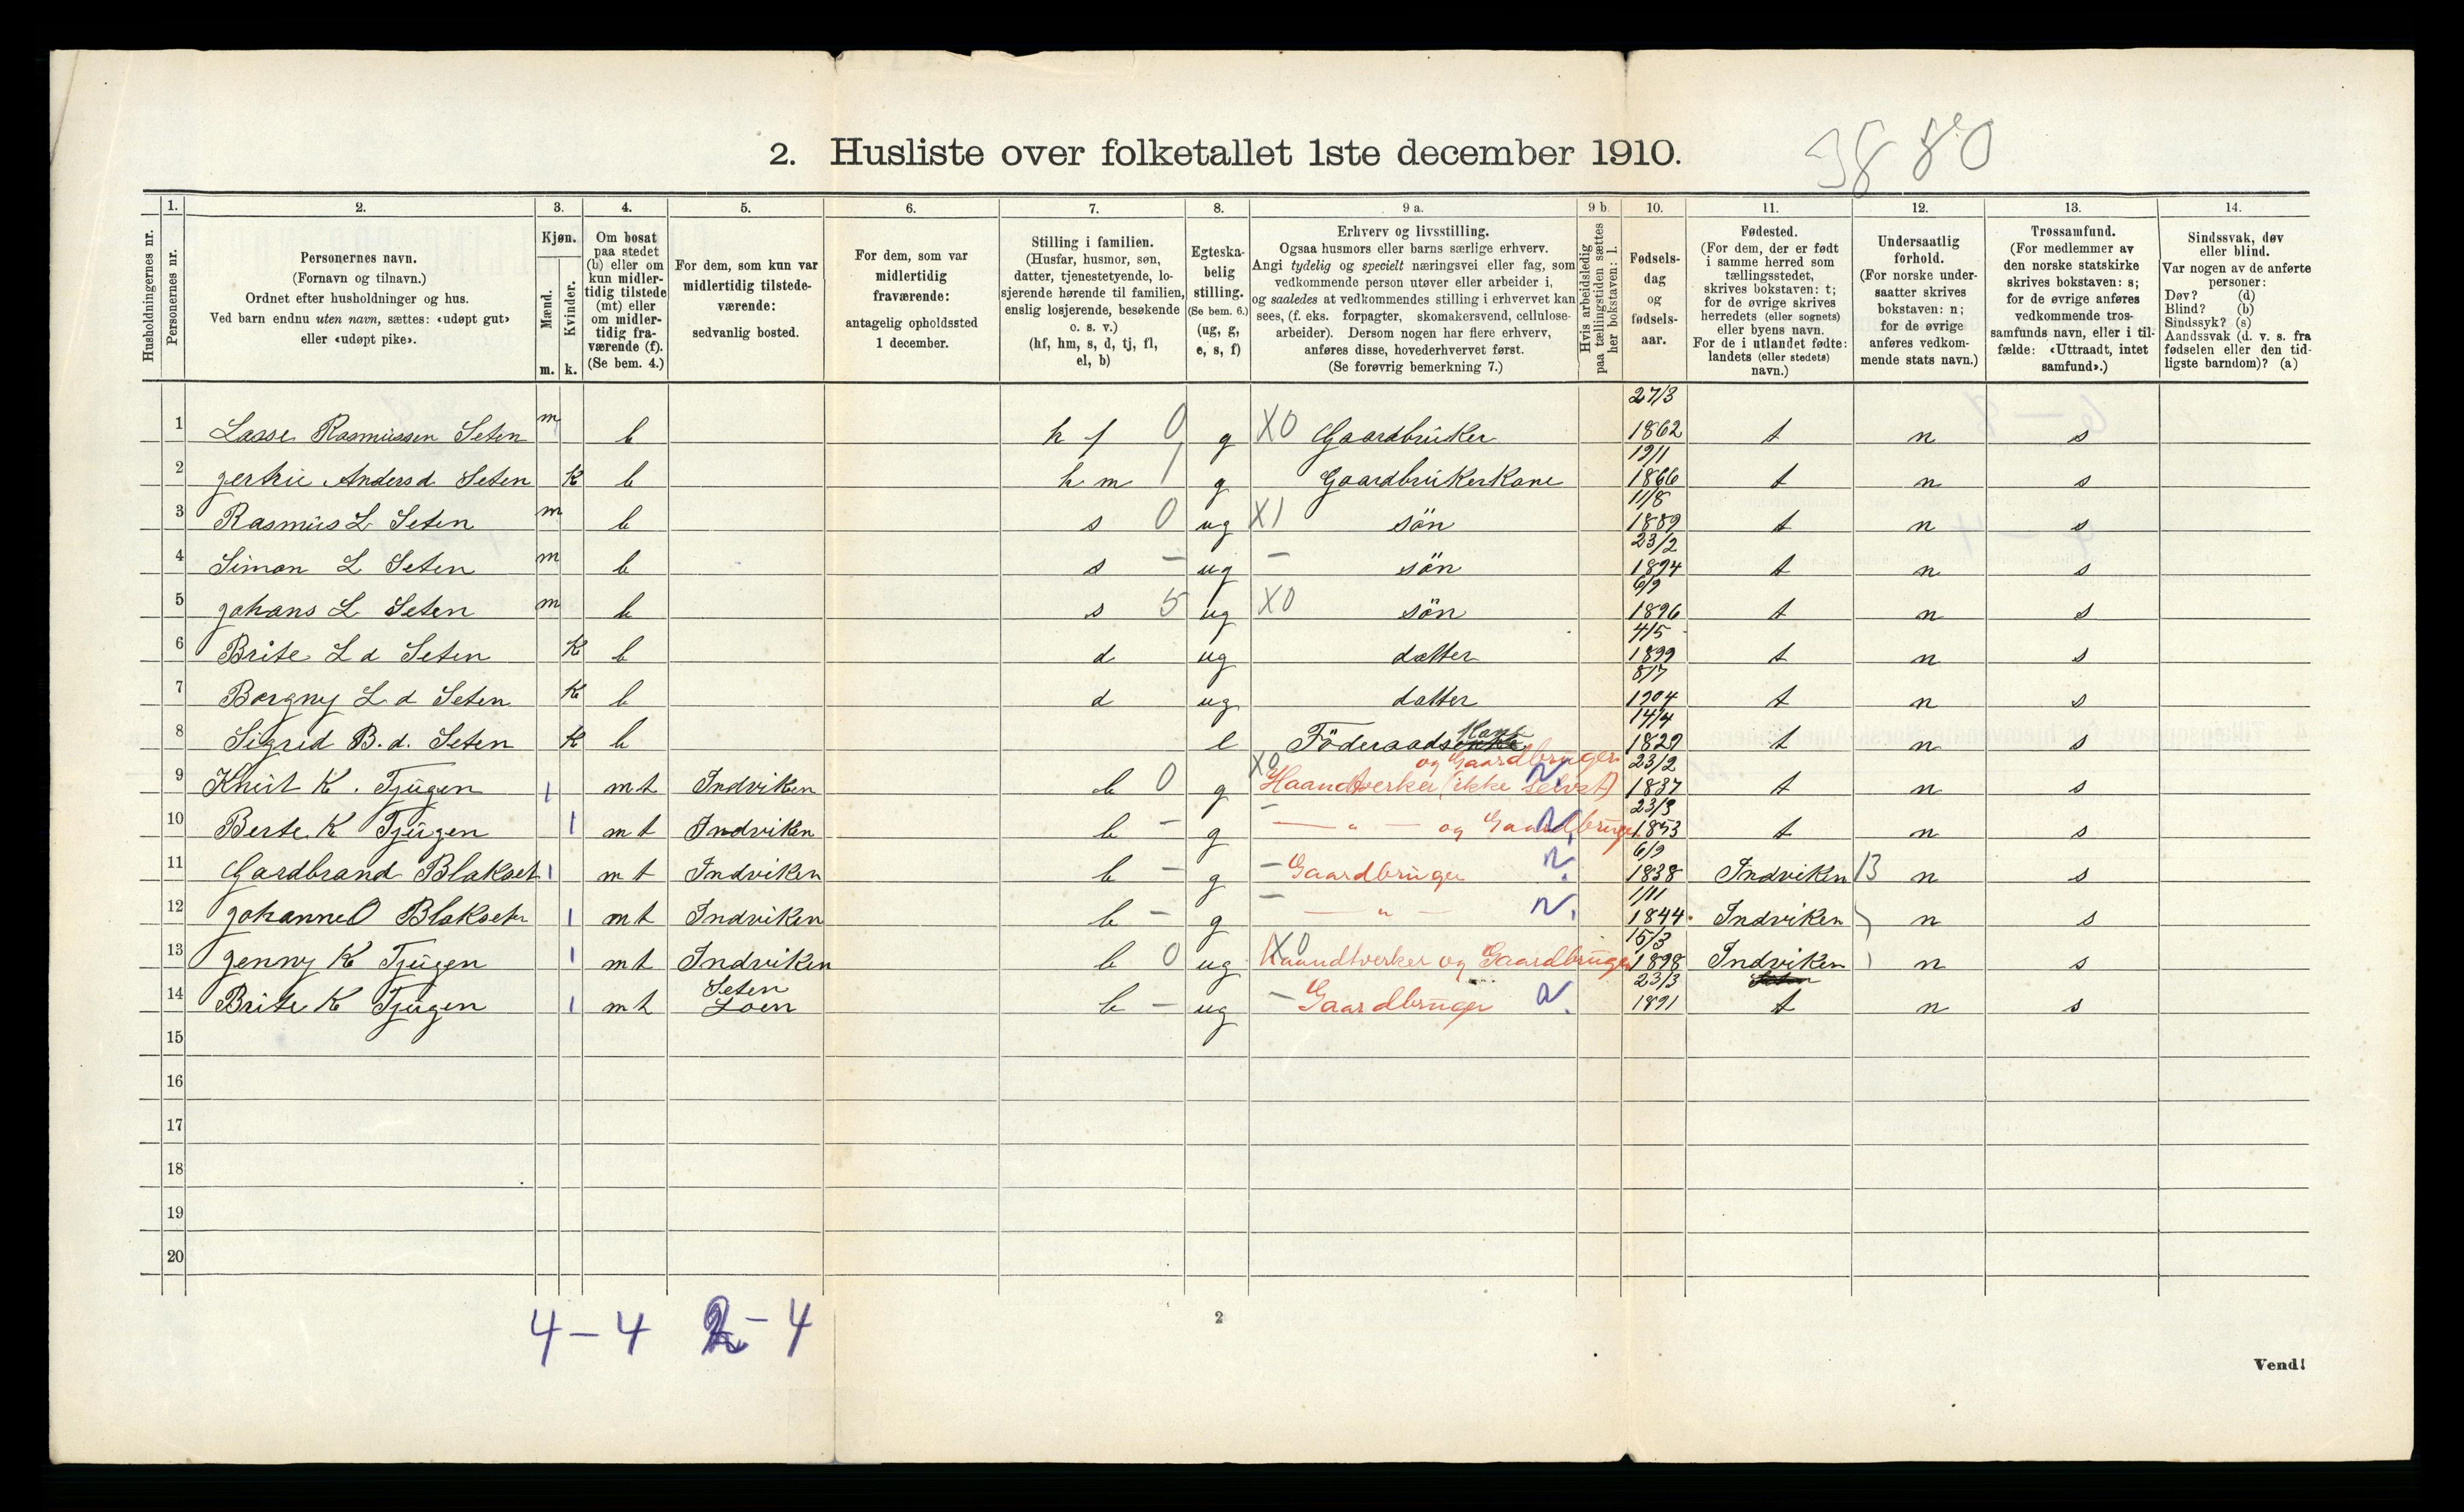 2. Husliste over folketallet 1ste december 1910.
38 80
Husholdningernes nr.
1.
Personernes nr.
2.
Personernes navn.
(Fornavn og tilnavn.)
Ordnet efter husholdninger og hus.
Ved barn endnu uten navn, sættes: «udøpt gut»
eller «udøpt pike».
3.
Kjøn.
Mænd.
Kvinder.
m. k.
4.
Om bosat
paa stedet
(b) eller om
kun midler-
tidig tilstede
(mt) eller
om midler-
tidig fra-
værende (f).
(Se bem. 4.)
5.
For dem, som kun var
midlertidig tilstede-
værende:
sedvanlig bosted.
6.
For dem, som var
midlertidig
fraværende:
antagelig opholdssted
1 december.
7.
Stilling i familien.
(Husfar, husmor, søn,
datter, tjenestetyende, lo-
sjerende hørende til familien,
enslig losjerende, besøkende
o. s. v.)
(hf, hm, s, d, tj, fl,
el, b)
8.
Egteska-
belig
stilling.
(Se bem. 6.)
(ug, g,
e, s, f)
9 a.
Erhverv og livsstilling.
Ogsaa husmors eller barns særlige erhverv.
Angi tydelig og specielt næringsvei eller fag, som
vedkommende person utøver eller arbeider i,
og saaledes at vedkommendes stilling i erhvervet kan
sees, (f. eks. forpagter, skomakersvend, cellulose-
arbeider). Dersom nogen har flere erhverv,
anføres disse, hovederhvervet først.
(Se forøvrig bemerkning 7.)
9 b.
Hvis arbeidsledig
paa tællingstiden sættes
her bokstaven: l.
10.
Fødsels-
dag
og
fødsels-
aar.
11.
Fødested.
(For dem, der er født
i samme herred som
tællingsstedet,
skrives bokstaven: t;
for de øvrige skrives
herredets (eller sognets)
eller byens navn.
For de i utlandet fødte:
landets (eller stedets)
navn.)
12.
Undersaatlig
forhold.
(For norske under-
saatter skrives
bokstaven: n;
for de øvrige
anføres vedkom-
mende stats navn.)
13.
Trossamfund.
(For medlemmer av
den norske statskirke
skrives bokstaven: s;
for de øvrige anføres
vedkommende tros-
samfunds navn, eller i til-
fælde: «Uttraadt, intet
samfund».)
14.
Sindssvak, døv
eller blind.
Var nogen av de anførte
personer:
Døv? (d)
Blind? (b)
Sindssyk? (s)
Aandssvak (d. v. s. fra
fødselen eller den tid-
ligste barndom)? (a)
1 Lasse Rasmussen Seten m b h f 0 g X0 Gaardbruker 27/3 1862 t n s
2 Gertrie Andersd Seten K b h m 1 g Gaardbrukerkone 19/1 1866 t n s
3 Rasmus L Seten m b s 0 ug X1 sön 11/8 1889 t n s
4 Simon L Seten m b s - ug - sön 23/2 1894 t n s
5 Johans L Seten m b s 5 ug X0 sön 6/9 1896 t n s
6 Brite L d Seten K b d ug datter 4/5 1899 t n s
7 Borgny L d Seten K b d ug datter 8/7 1904 t n s
8 Sigrid B. d. Seten K b e Föderaadsenke Kone 14/4 1829 t n s
9 Knut K. Tjugen 1 m t Indviken b 0 g X0 Haandverker (ikke selvst) og Gaardbruger n. 23/2 1837 t n s
10 Berte K Tjugen 1 m t Indviken b - g - — " — og Gaardbruger n. 23/3 1853 t n s
11 Gardbrand Blakset 1 m t Indviken b - g - Gaardbruger n. 6/9 1838 Indviken 13 n s
12 Johanne O Blaksetr 1 m t Indviken b - g - — " — n. 1/11 1844 Indviken n s
13 Jenny K Tjugen 1 m t Indviken b 0 ug X0 Haandtverker og Gaardbruger 15/3 1898 Indviken n s
14 Brite K Tjugen 1 m t Seten Loen b - ug - Gaardbruger n. 23/3 1891 Seten t n s
15
16
17
18
19
20
4-4 2-4
2
Vend!